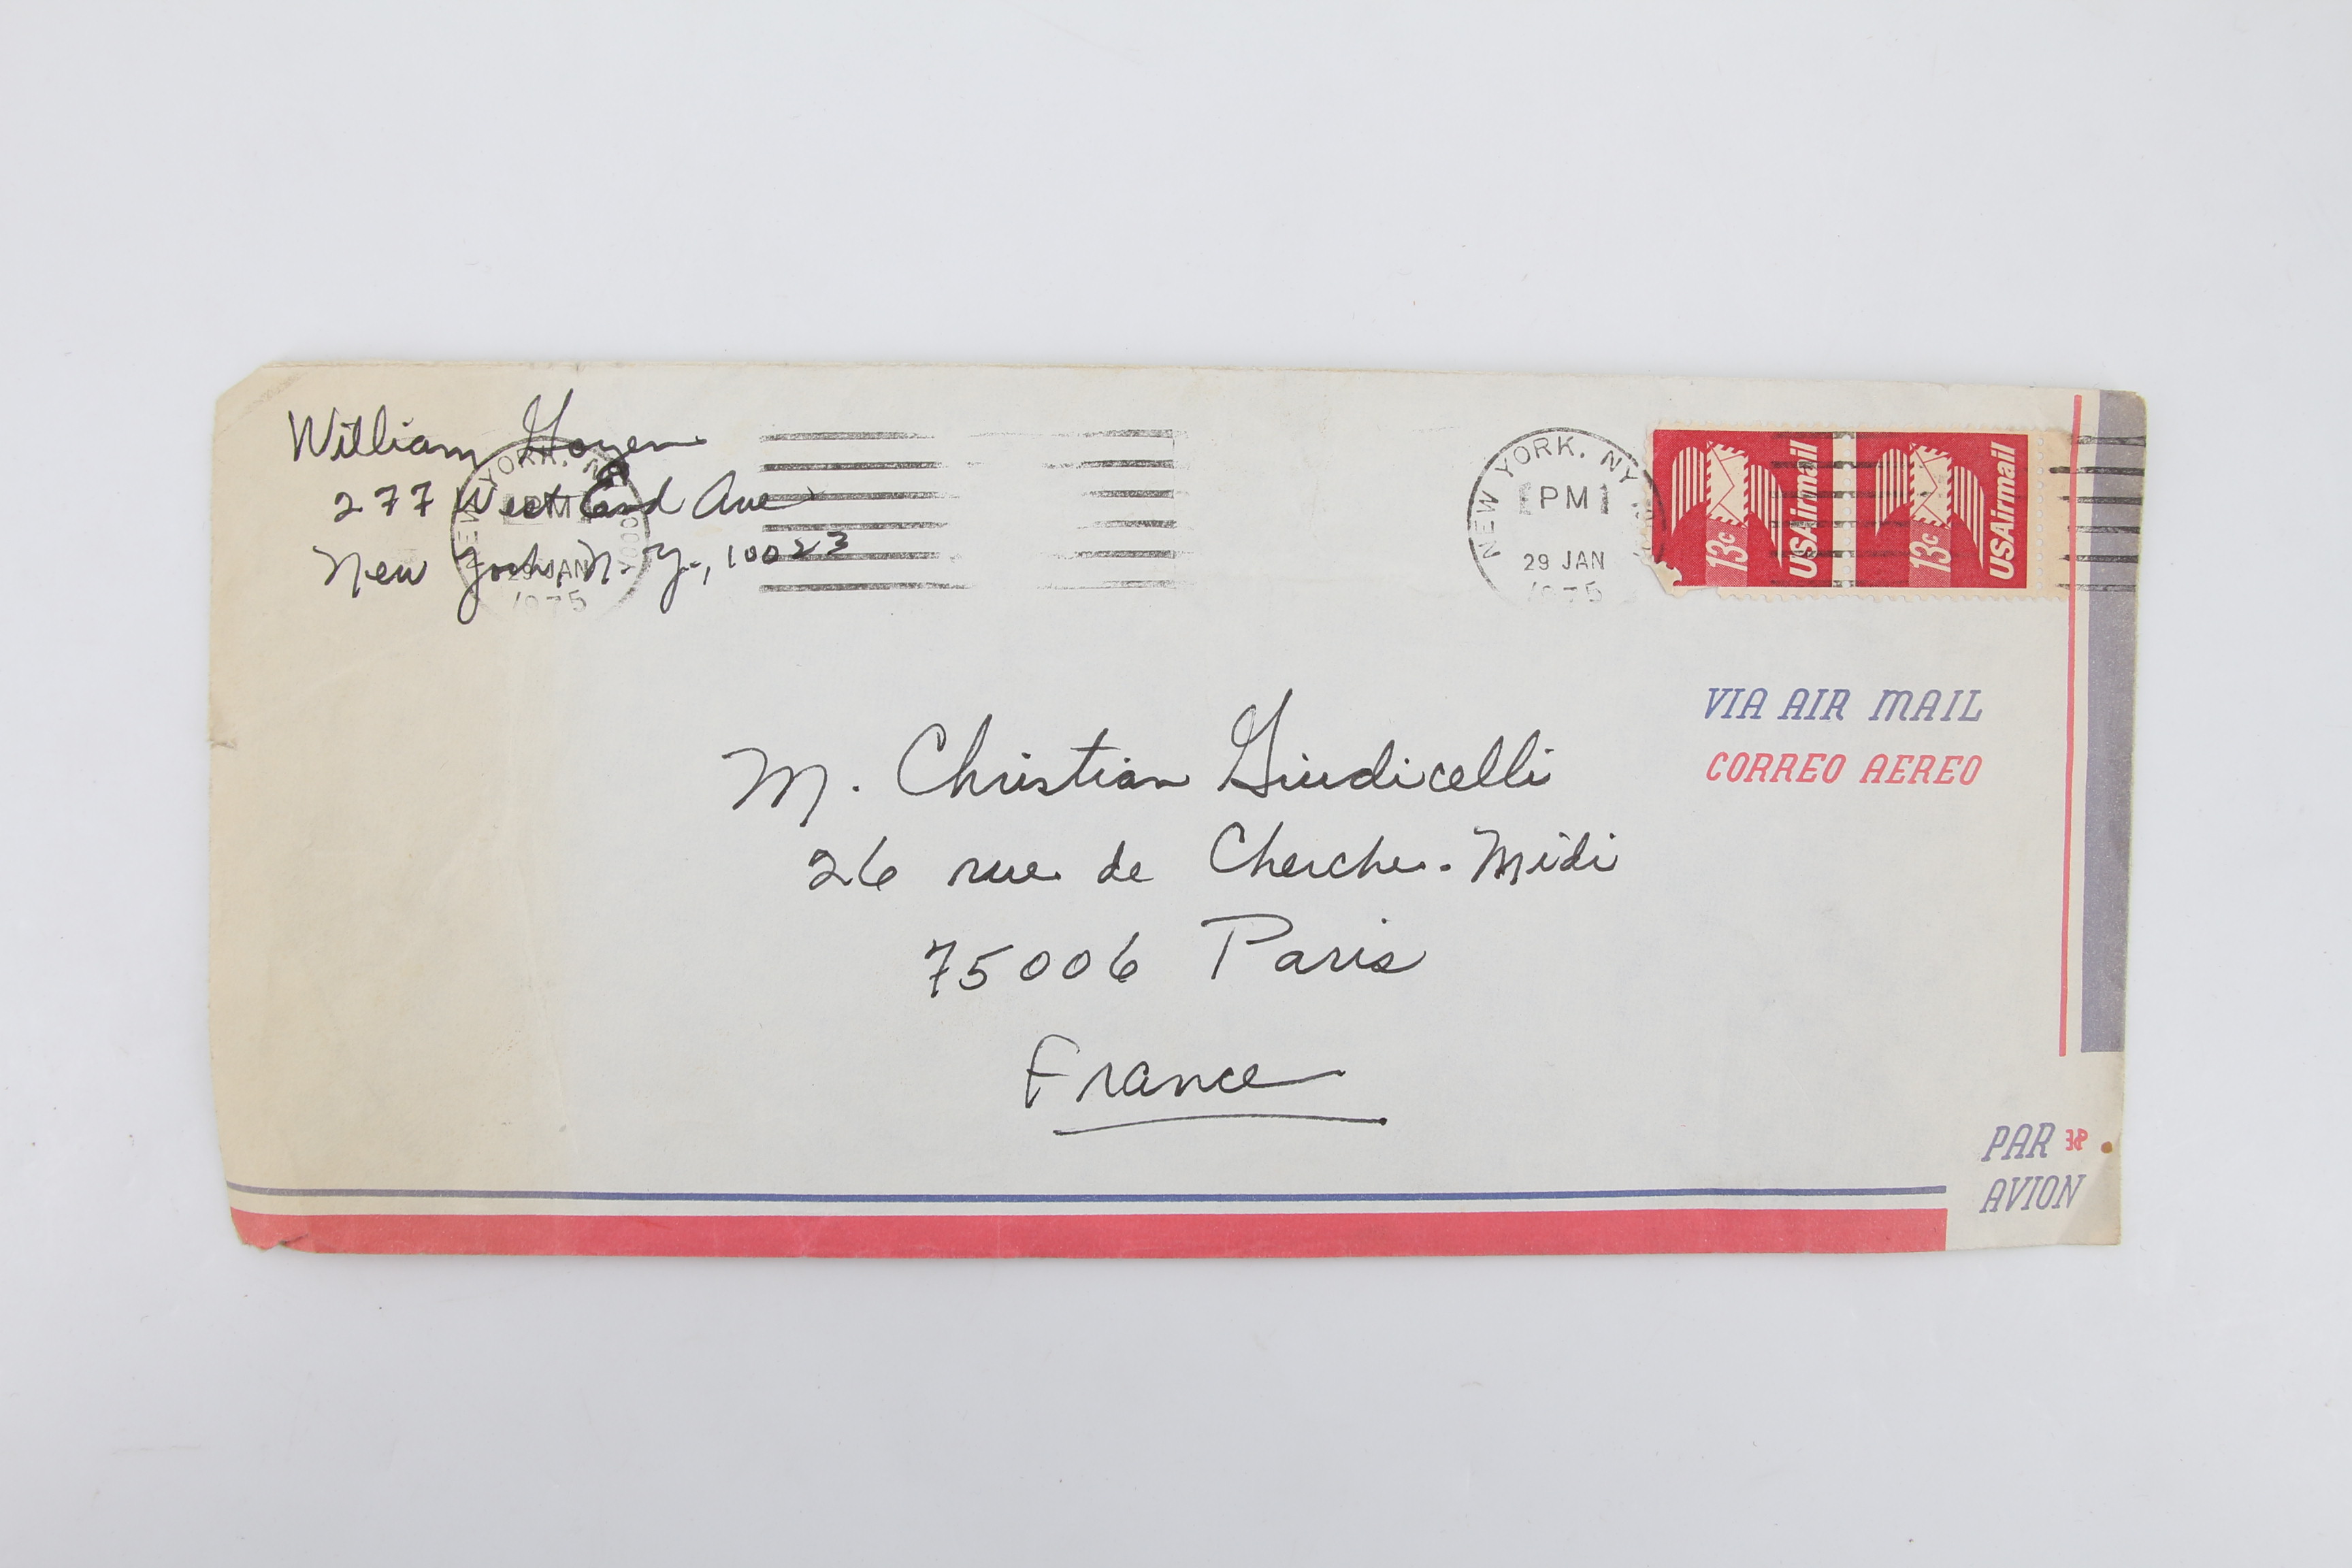 William Goyen
277 West End Ave
New York, N.Y., 10023
NEW YORK, NY
PM
29 JAN
1975
NEW YORK, NY
PM
29 JAN
1975
13c USAirmail
13c USAirmail
VIA AIR MAIL
CORREO AEREO
M. Christian Giudicelli
26 rue de Cherche-Midi
75006 Paris
France
PAR
AVION